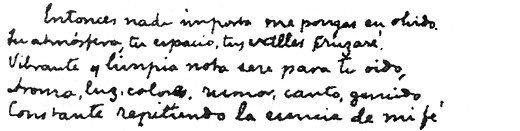 Entonces nada importa me pongas en olvido.
Tu atmósfera, tu espacio, tus valles cruzaré.
Vibrante y limpia nota seré para tu oido,
Aroma, luz, colores, rumor, canto, gemido
Constante repitiendo la esencia de mi fé.